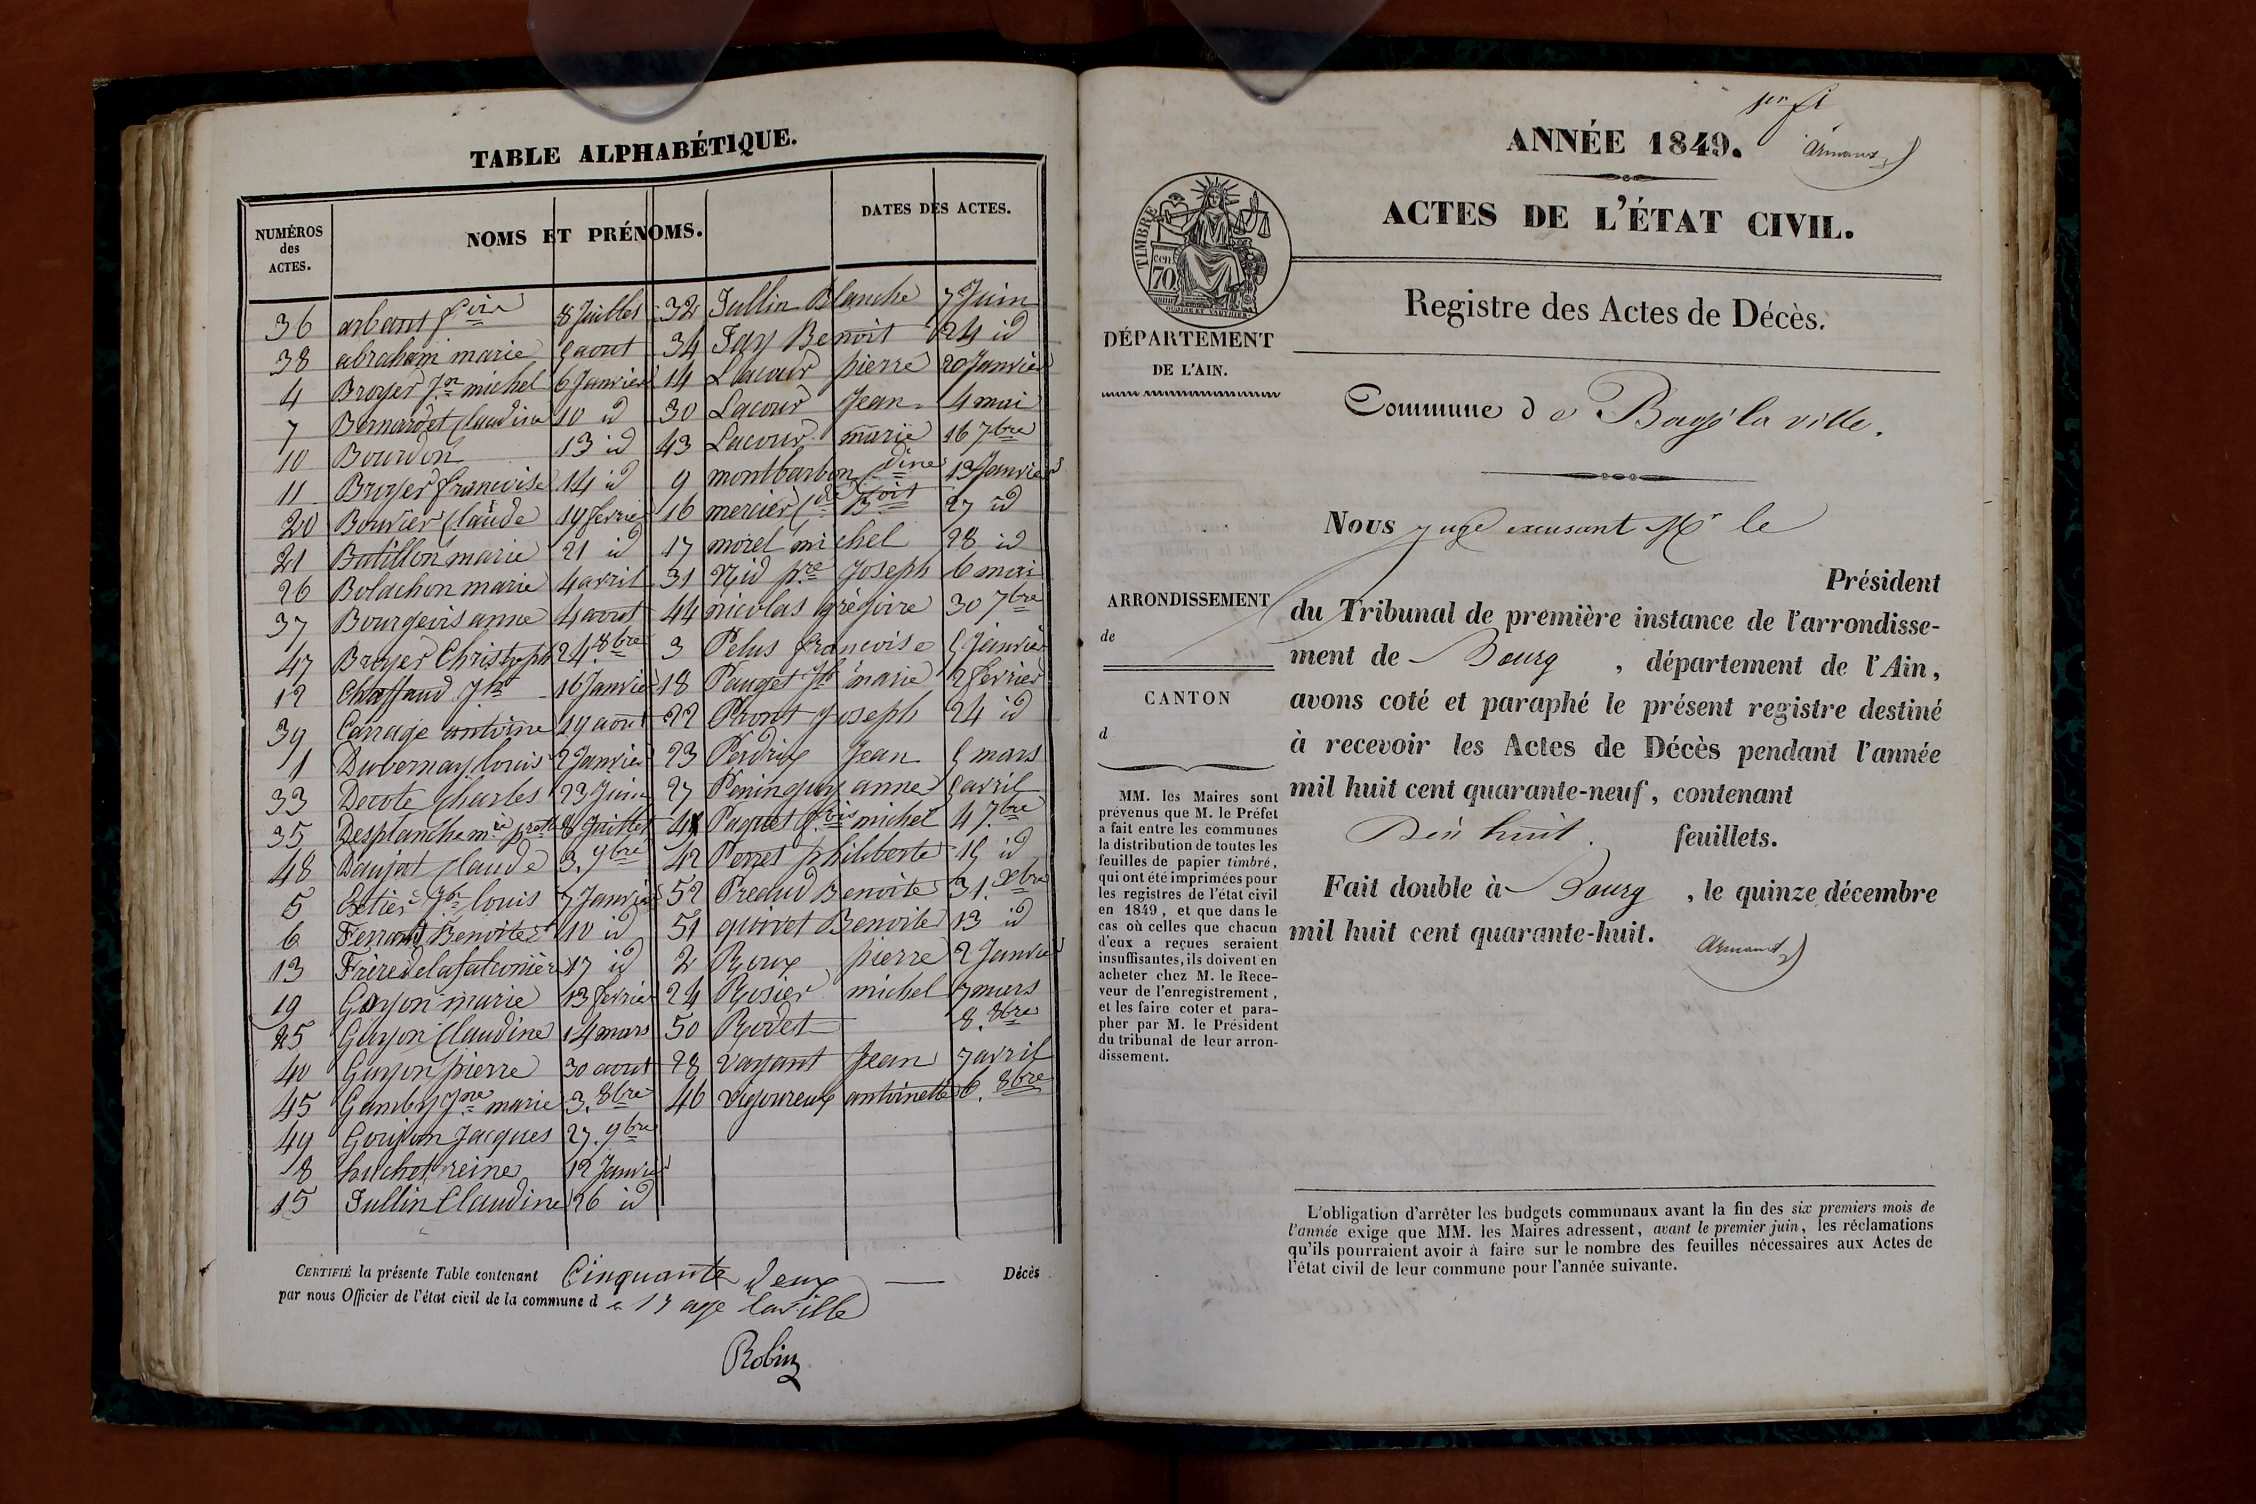 TABLE ALPHABÉTIQUE.
NUMÉROS
des
ACTES.
NOMS ET PRÉNOMS.
DATES DES ACTES.
36 arbant 8 Juillet
38 abraham marie août
4 Broyer michel 6 Janvier
7 Bernardet Claudine 10 id
10 Bourdon 13 id
11 Broyer françoise 14 id
20 Bouvier Claude 19 fevrier
21 Batillon marie 21 id
26 Bolachon marie 4 avril
37 Bourgeois anne 4 aout
47 Broyer Christophe 24. 8bre
12 Chaffaud 16 Janvier
39 Carrage antoine 19 août
1 Dubernay louis 2 Janvier
33 Decote Charles 23 Juin
35 Desplanche 8 Juillet
48 Daujat Claude 3. 9bre
5 louis 7 Janvier
6 Ferrand Benoite 10 id
13 Frère de la fatconière 17 id
19 Guyon marie 13 fevrier
25 Guyon Claudine 14 mars
40 Guyon pierre 30 aout
45 Gamby Jne marie 3. 8bre
49 Goujon Jacques 27. 9bre
8 huchet reine 12 Janvier
15 Jullin Claudine 26 id
32 Jullin Blanche 7 Juin
34 Fay Benoit 24 id
14 Lacour pierre 20 Janvier
30 Lacour Jean 4 mai
43 Lacour marie 16 7bre
9 montbarbon Cdine 13 Janvier
16 mercier 27 id
17 morel michel 28 id
31 Nid pre Joseph 6 mai
44 nicolas grégoire 30 7bre
3 Pelus françoise 5 janvier
18 Pauget marie 2 fevrier
22 Pront Joseph 24 id
23 Perdrix Jean 5 mars
27 Peninguy anne avril
41 Paquet fois michel 4 7bre
42 Perret philiberte 15 id
52 Preaud Benoite 31. Xbre
51 quivet Benoite 13 id
2 Roux pierre 2 Janvier
24 Rosier michel 7 mars
50 Rodet 8. 8bre
28 vayant Jean 7 avril
46 vigoureux antoinette 6. 8bre
CERTIFIÉ la présente Table contenant Cinquante deux Décès
par nous Officier de l'état civil de la commune de Bage laville
Robin
1er ft
Armand
ANNÉE 1849.
ACTES DE L'ÉTAT CIVIL.
TIMBRE
70 cen
DÉPARTEMENT
DE L'AIN.
Registre des Actes de Décès.
Commune de Bagé la ville.
Nous juge excusant Mr le
Président
du Tribunal de première instance de l'arrondisse-
ment de Bourg, département de l'Ain,
avons coté et paraphé le présent registre destiné
à recevoir les Actes de Décès pendant l'année
mil huit cent quarante-neuf, contenant
Dix huit. feuillets.
Fait double à Bourg, le quinze décembre
mil huit cent quarante-huit.
Armand
ARRONDISSEMENT
de
CANTON
d
MM. les Maires sont
prévenus que M. le Préfet
a fait entre les communes
la distribution de toutes les
feuilles de papier timbré,
qui ont été imprimées pour
les registres de l'état civil
en 1849, et que dans le
cas où celles que chacun
d'eux a reçues seraient
insuffisantes, ils doivent en
acheter chez M. le Rece-
veur de l'enregistrement,
et les faire coter et para-
pher par M. le Président
du tribunal de leur arron-
dissement.
L'obligation d'arrêter les budgets communaux avant la fin des six premiers mois de
l'année exige que MM. les Maires adressent, avant le premier juin, les réclamations
qu'ils pourraient avoir à faire sur le nombre des feuilles nécessaires aux Actes de
l'état civil de leur commune pour l'année suivante.